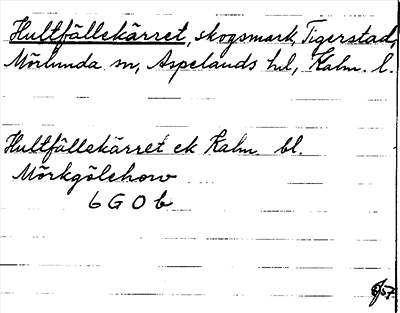 Hultfällekärret, skogsmark, Tigerstad,
Mörlunda sn, Aspelands hd, Kalm. l.
Hultfällekärret ek Kalm. bl.
Mörkgölehow
6 G 0 b